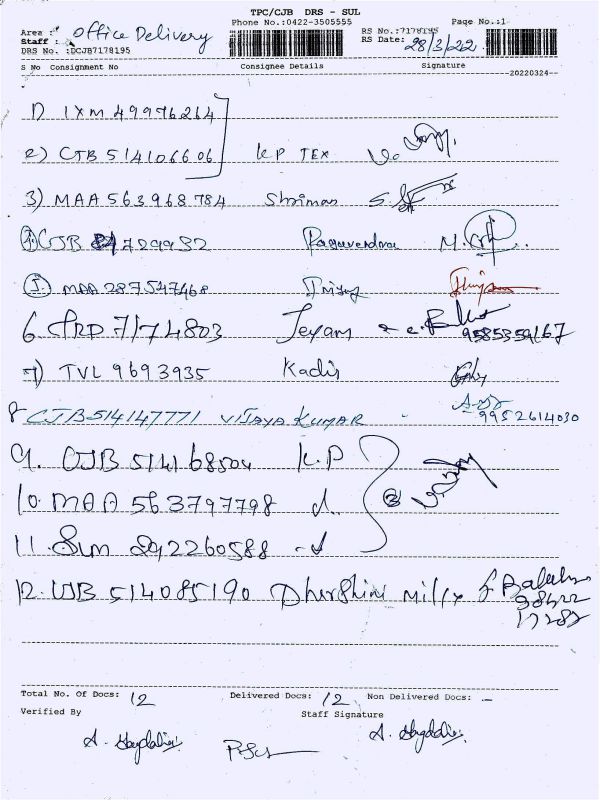 TPC/CJB DRS - SUL
Phone No.:0422-3505555 Page No.:1
Area : Office Delivery RS No.:7178195
Staff : RS Date: 28/3/22
DRS No. :DCJB7178195
S No Consignment No Consignee Details Signature
20220324
1) IXM 49976264
2) CJB 514106606 K P TEX
3) MAA 563968784 Shriman
4. CJB 729932 Ragavendra
5. MAA 287547468
6. 7174803 Jeyam 9585359167
7) TVL 9693935 Kadir
8 CJB514147771 VIJAYA KUMAR 9952614030
9. CJB 514168504 K.P
10. MAA 563797798
11. Sum 292260588
12. CJB 514085190 Dharshini Millx 98422
17282
Total No. Of Docs: 12 Delivered Docs: 12 Non Delivered Docs: -
Verified By Staff Signature